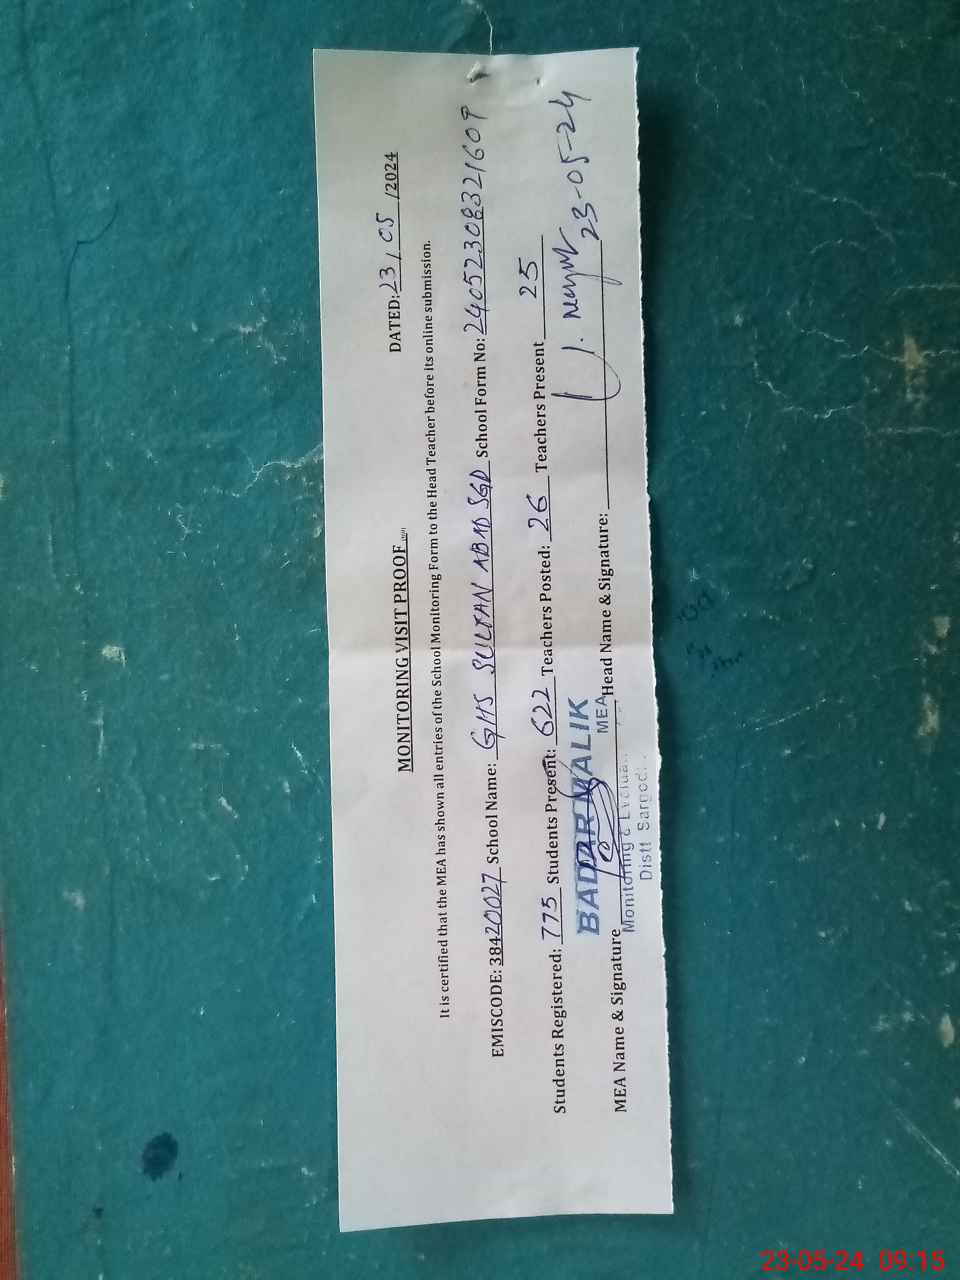 MONITORING VISIT PROOF
DATED: 23 / 05 /2024
It is certified that the MEA has shown all entries of the School Monitoring Form to the Head Teacher before its online submission.
EMISCODE: 38420027 School Name: GHS SULTAN ABAD SGD School Form No: 24052308321609
Students Registered: 775 Students Present: 622 Teachers Posted: 26 Teachers Present 25
BADAR MALIK
MEA
MEA Name & Signature Head Name & Signature: 23-05-24
Monitoring &
Distt
23-05-24 09:15